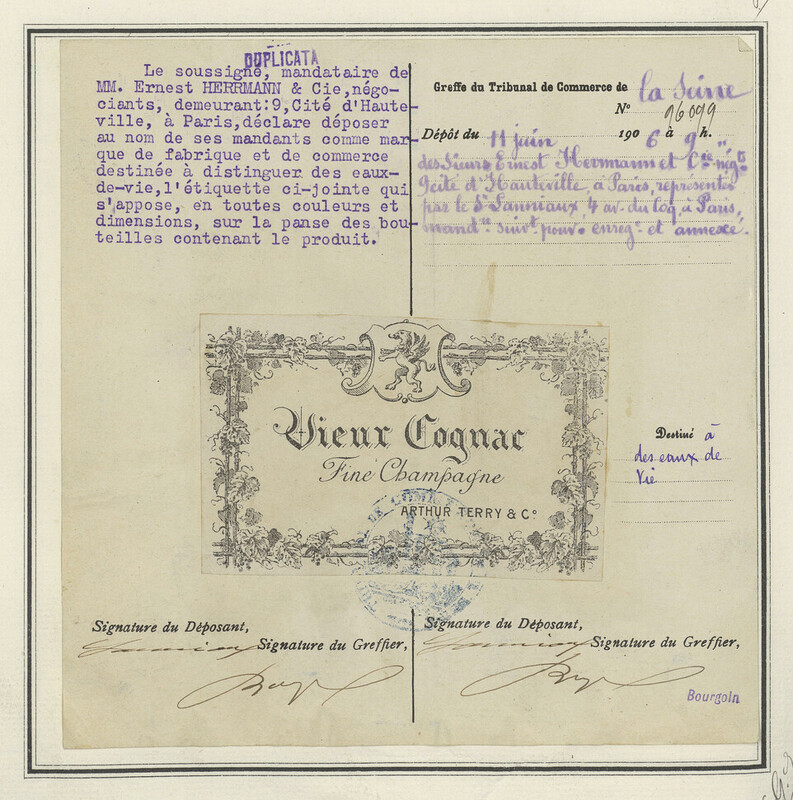 DUPLICATA
Le soussigné, mandataire de
MM. Ernest HERRMANN & Cie,négo-
ciants, demeurant:9,Cité d'Haute-
ville, à Paris,déclare déposer
au nom de ses mandants comme mar-
que de fabrique et de commerce
destinée à distinguer des eaux-
de-vie,l'étiquette ci-jointe qui
s'appose, en toutes couleurs et
dimensions, sur la panse des bou-
teilles contenant le produit.
Greffe du Tribunal de Commerce de la Seine
N° 96099
Dépôt du 11 juin 1906 à 9 h. "
des Sieurs Ernest Herrmann et Cie négts
9 cité d'Hauteville, à Paris, représentés
par le Sr Sanniaux, 4 av. du Coq, à Paris,
mandre suivt pouv. enregt et annexé.
Vieux Cognac
Fine Champagne
ARTHUR TERRY & Co
Destiné à
des eaux de
vie
Signature du Déposant,
Signature du Greffier,
Signature du Déposant,
Signature du Greffier,
Bourgoin